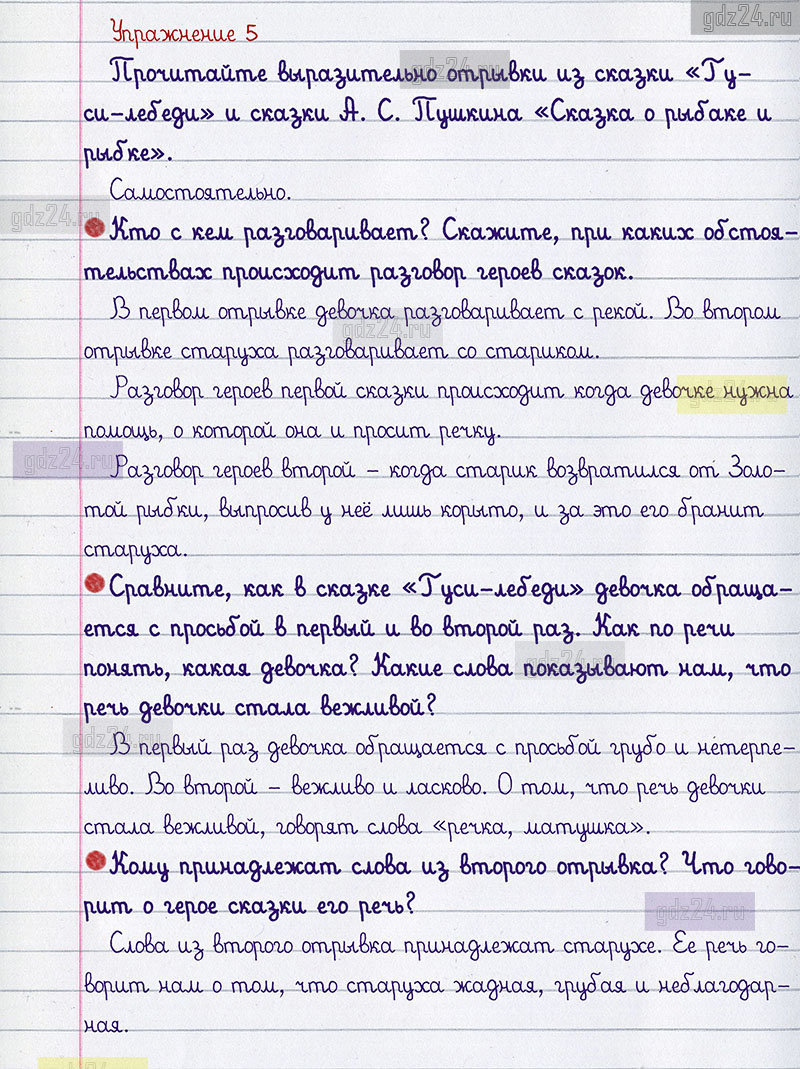 gdz24.ru
Упражнение 5
Прочитайте выразительно отрывки из сказки «Гу-
gdz24.ru
си-лебеди» и сказки А. С. Пушкина «Сказка о рыбаке и
рыбке».
Самостоятельно.
gdz24.ru
Кто с кем разговаривает? Скажите, при каких обстоя-
тельствах происходит разговор героев сказок.
В первом отрывке девочка разговаривает с рекой. Во втором
gdz24.ru
отрывке старуха разговаривает со стариком.
Разговор героев первой сказки происходит когда девочке нужна
помощь, о которой она и просит речку.
gdz24.ru
Разговор героев второй – когда старик возвратился от Золо-
той рыбки, выпросив у неё лишь корыто, и за это его бранит
старуха.
Сравните, как в сказке «Гуси-лебеди» девочка обраща-
ется с просьбой в первый и во второй раз. Как по речи
понять, какая девочка? Какие слова показывают нам, что
gdz24.ru
речь девочки стала вежливой?
gdz24.ru
В первый раз девочка обращается с просьбой грубо и нетерпе-
ливо. Во второй – вежливо и ласково. О том, что речь девочки
стала вежливой, говорят слова «речка, матушка».
Кому принадлежат слова из второго отрывка? Что гово-
рит о герое сказки его речь?
gdz24.ru
Слова из второго отрывка принадлежат старухе. Ее речь го-
ворит нам о том, что старуха жадная, грубая и неблагодар-
ная.